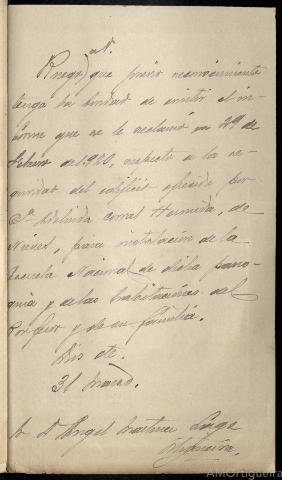 Ruego á V. que previo reconocimiento
tenga la bondad de emitir el in-
forme que se le reclamó en 29 de
Febrero de 1.920, respecto a la se-
guridad del edificio ofrecido por
Dª Adelinda Corral Hermida, de
para instalación de la
Escuela Nacional de dicha parro-
quia y de las habitaciones del
Profesor y de su familia.
Dios etc.
31 Marzo.
Sr D. Angel Martinez
AMOrtigueira